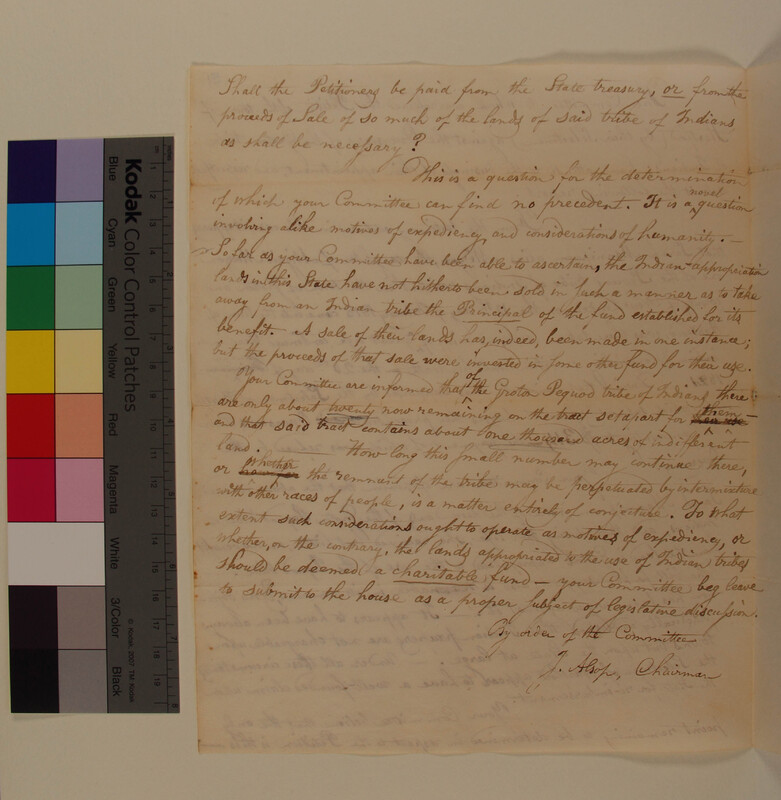 Shall the Petitioners be paid from the State treasury, or from the
proceeds of Sale of so much of the lands of said tribe of Indians
as shall be necessary?
This is a question for the determination
of which your Committee can find no precedent. It is a novel question
involving alike motives of expediency, and considerations of humanity. —
So far as your Committee have been able to ascertain, the Indian appropriation
lands in this State have not hitherto been sold in such a manner as to take
away from an Indian tribe the Principal of the fund established for its
benefit. A sale of their lands has, indeed, been made in one instance;
but the proceeds of that sale were invested in some other fund for their use.
Your Committee are informed that of the Groton Pequod tribe of Indians there
are only about twenty now remaining on the tract set apart for them —
and that said tract contains about one thousand acres of indifferent
land. How long this small number may continue there,
or whether the remnant of the tribe may be perpetuated by intermixture
with other races of people, is a matter entirely of conjecture. To what
extent such considerations ought to operate as motives of expediency, or
whether, on the contrary, the lands appropriated to the use of Indian tribes
should be deemed a charitable fund — your Committee beg leave
to submit to the house as a proper subject of legislative discussion.
By order of the Committee
J. Alsop, Chairman
Kodak Color Control Patches
Blue
Cyan
Green
Yellow
Red
Magenta
White
3/Color
Black
© Kodak, 2007 TM: Kodak